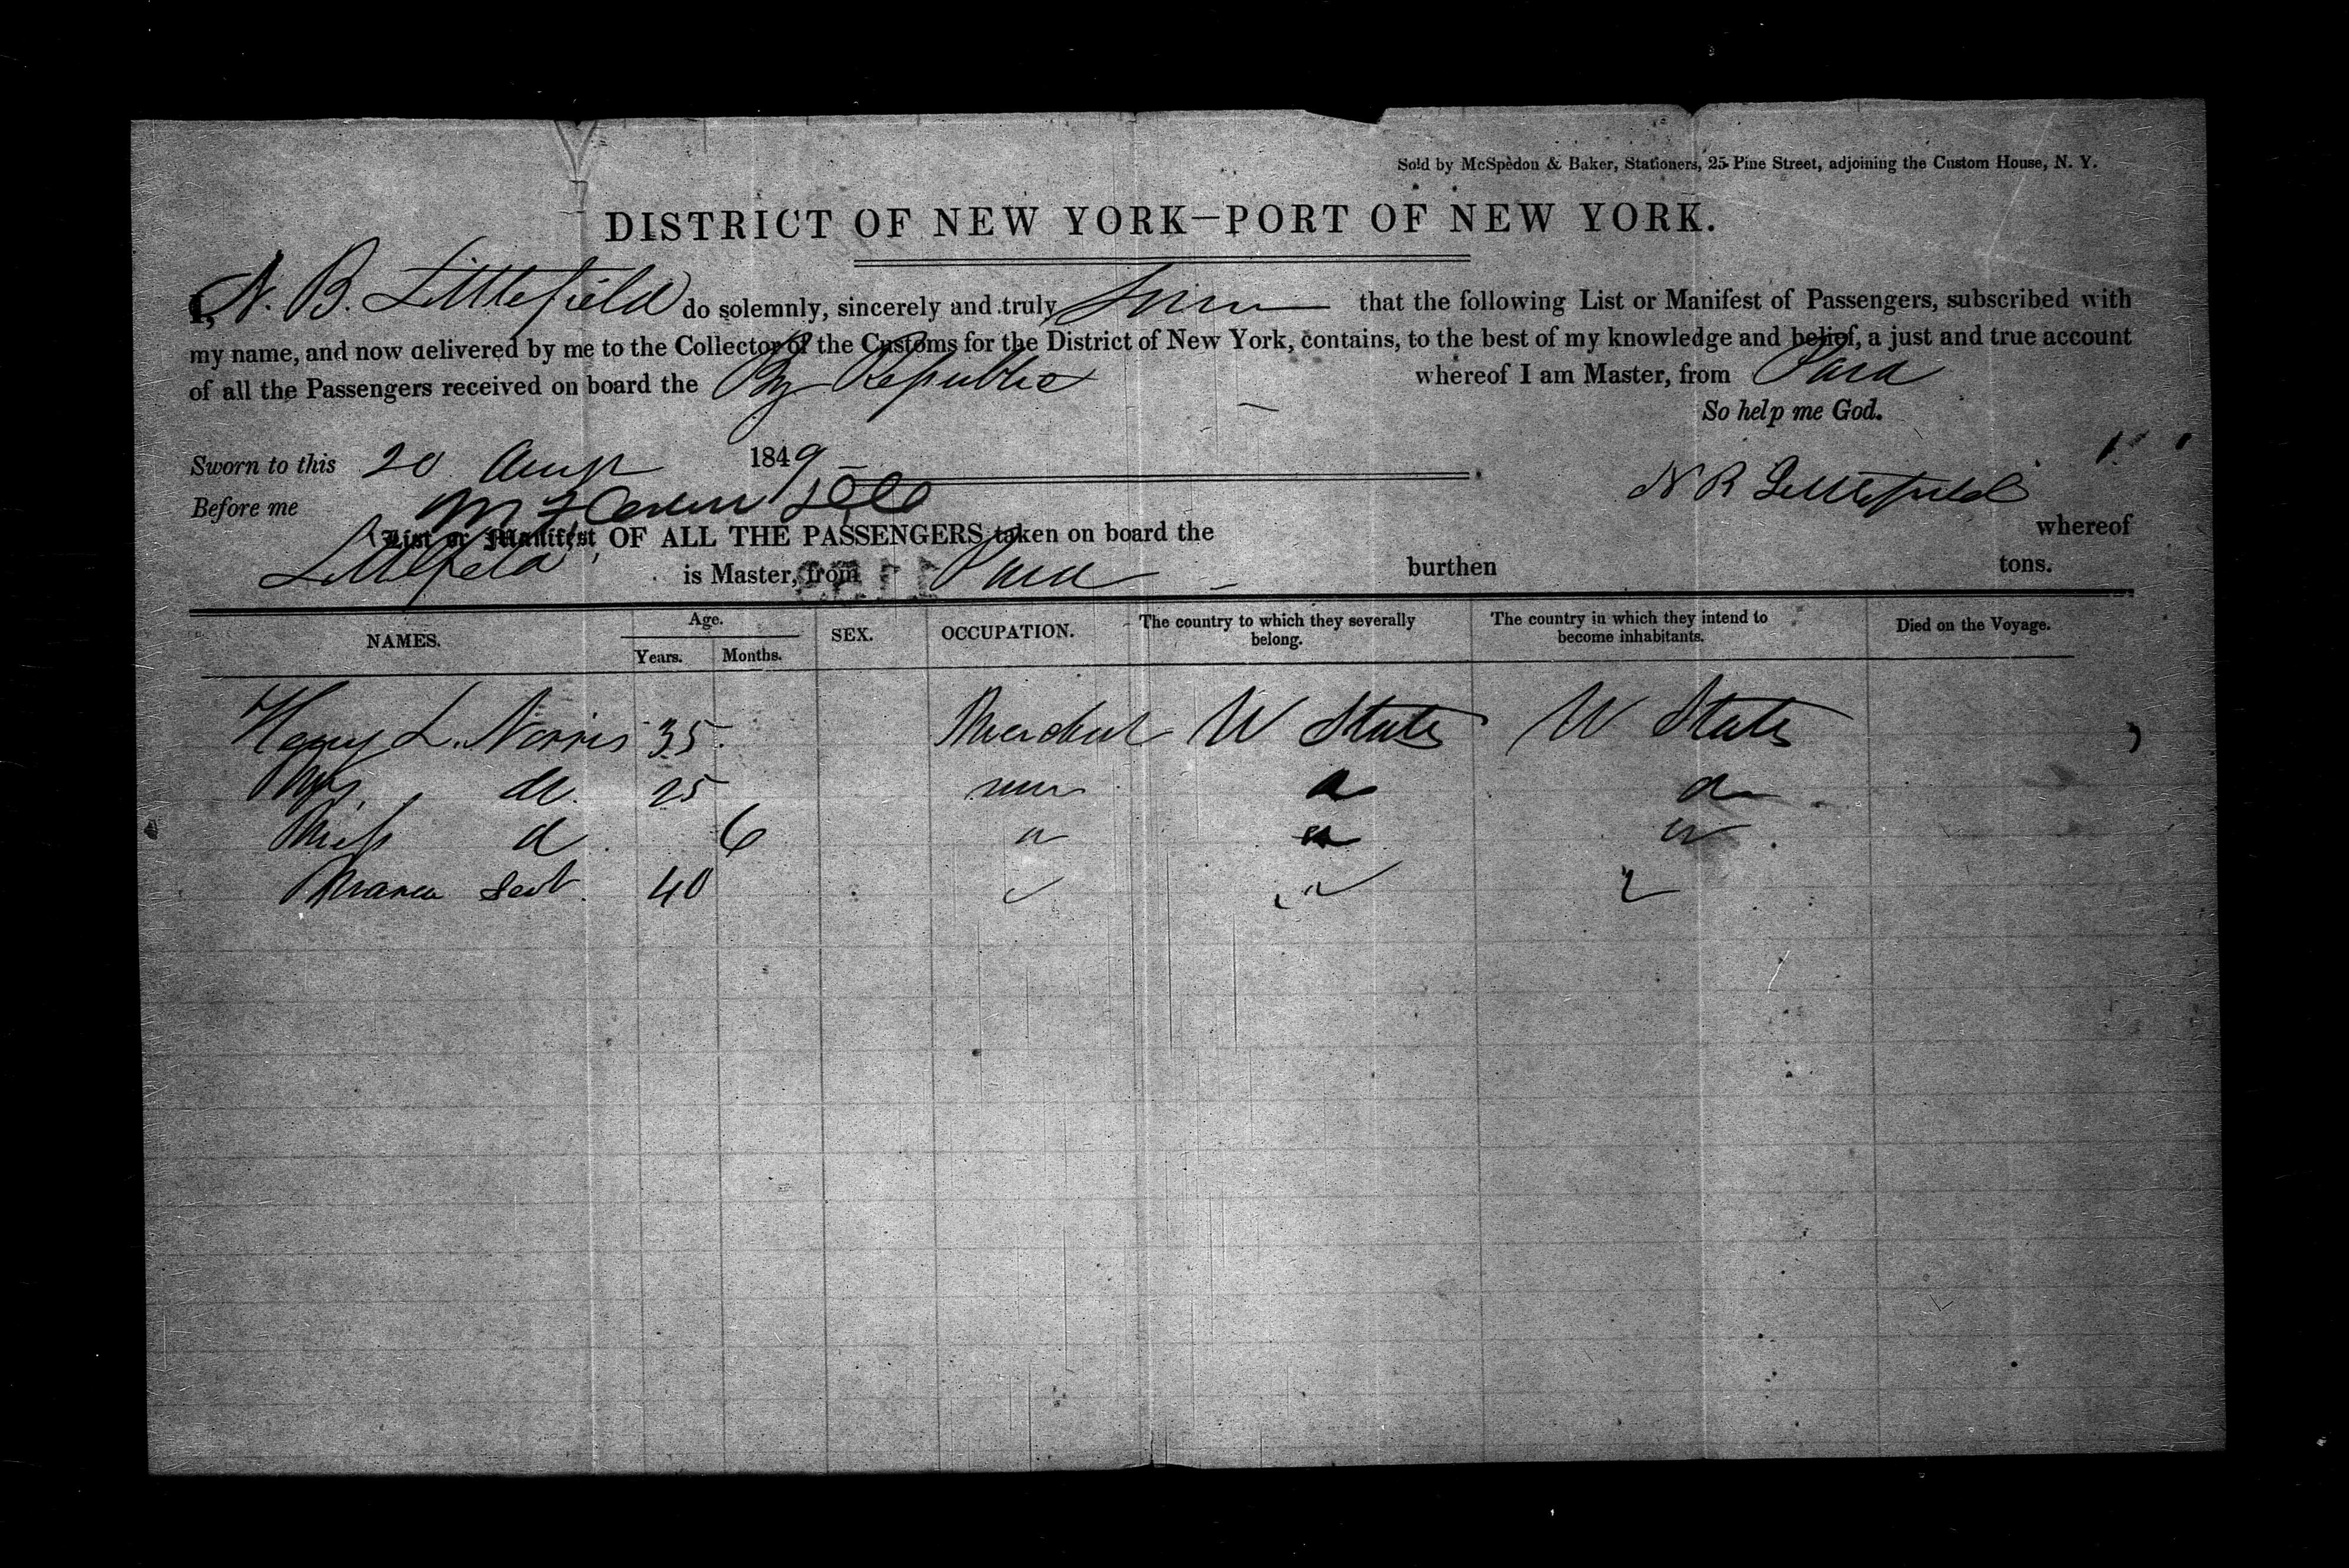 Sold by McSpedon & Baker, Stationers, 25 Pine Street, adjoining the Custom House, N. Y.
DISTRICT OF NEW YORK—PORT OF NEW YORK.
I, N. B. Littlefield do solemnly, sincerely and truly that the following List or Manifest of Passengers, subscribed with
my name, and now delivered by me to the Collector of the Customs for the District of New York, contains, to the best of my knowledge and belief, a just and true account
of all the Passengers received on board the Republic whereof I am Master, from Para
So help me God.
Sworn to this 20 Augt 1849
Before me
N B Littlefield
List or Manifest OF ALL THE PASSENGERS taken on board the whereof
Littlefield is Master, from Para burthen tons.
NAMES. Age. Years. Months. SEX. OCCUPATION. The country to which they severally belong. The country in which they intend to become inhabitants. Died on the Voyage.
Henry L. Norris 35 Merchant U States U States
Mrs. do 25
Miss d 6
40